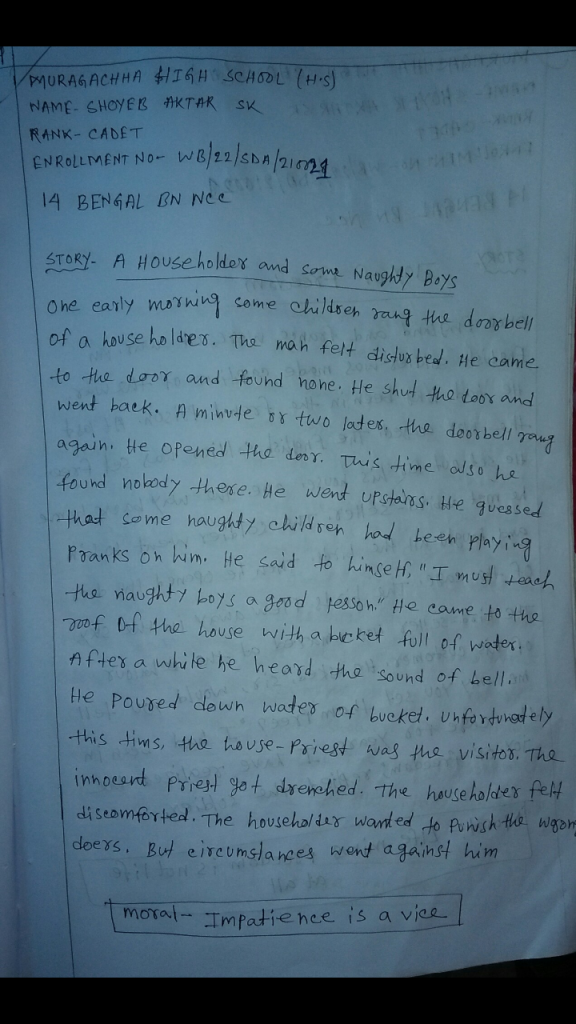 MURAGACHHA HIGH SCHOOL (H.S)
NAME- SHOYEB AKTAR SK
RANK- CADET
ENROLLMENT NO- WB/22/SDA/210021
14 BENGAL BN NCC
STORY- A Householder and some Naughty Boys
One early morning some children rang the doorbell
of a householdrer. The man felt disturbed. He came
to the door and found none. He shut the door and
went back. A minute or two later, the doorbell rang
again. He opened the door. This time also he
found nobody there. He went upstairs. He guessed
that some naughty children had been playing
Pranks on him. He said to himself, "I must teach
the naughty boys a good lesson." He came to the
roof of the house with a bucket full of water.
After a while he heard the sound of bell.
He poured down water of bucket. Unfortunately
this tims, the house-Priest was the visitor. The
innocent Priest got drenched. The householder felt
discomforted. The householder wanted to Punish the wrong
doers. But circumstances went against him
moral- Impatience is a vice